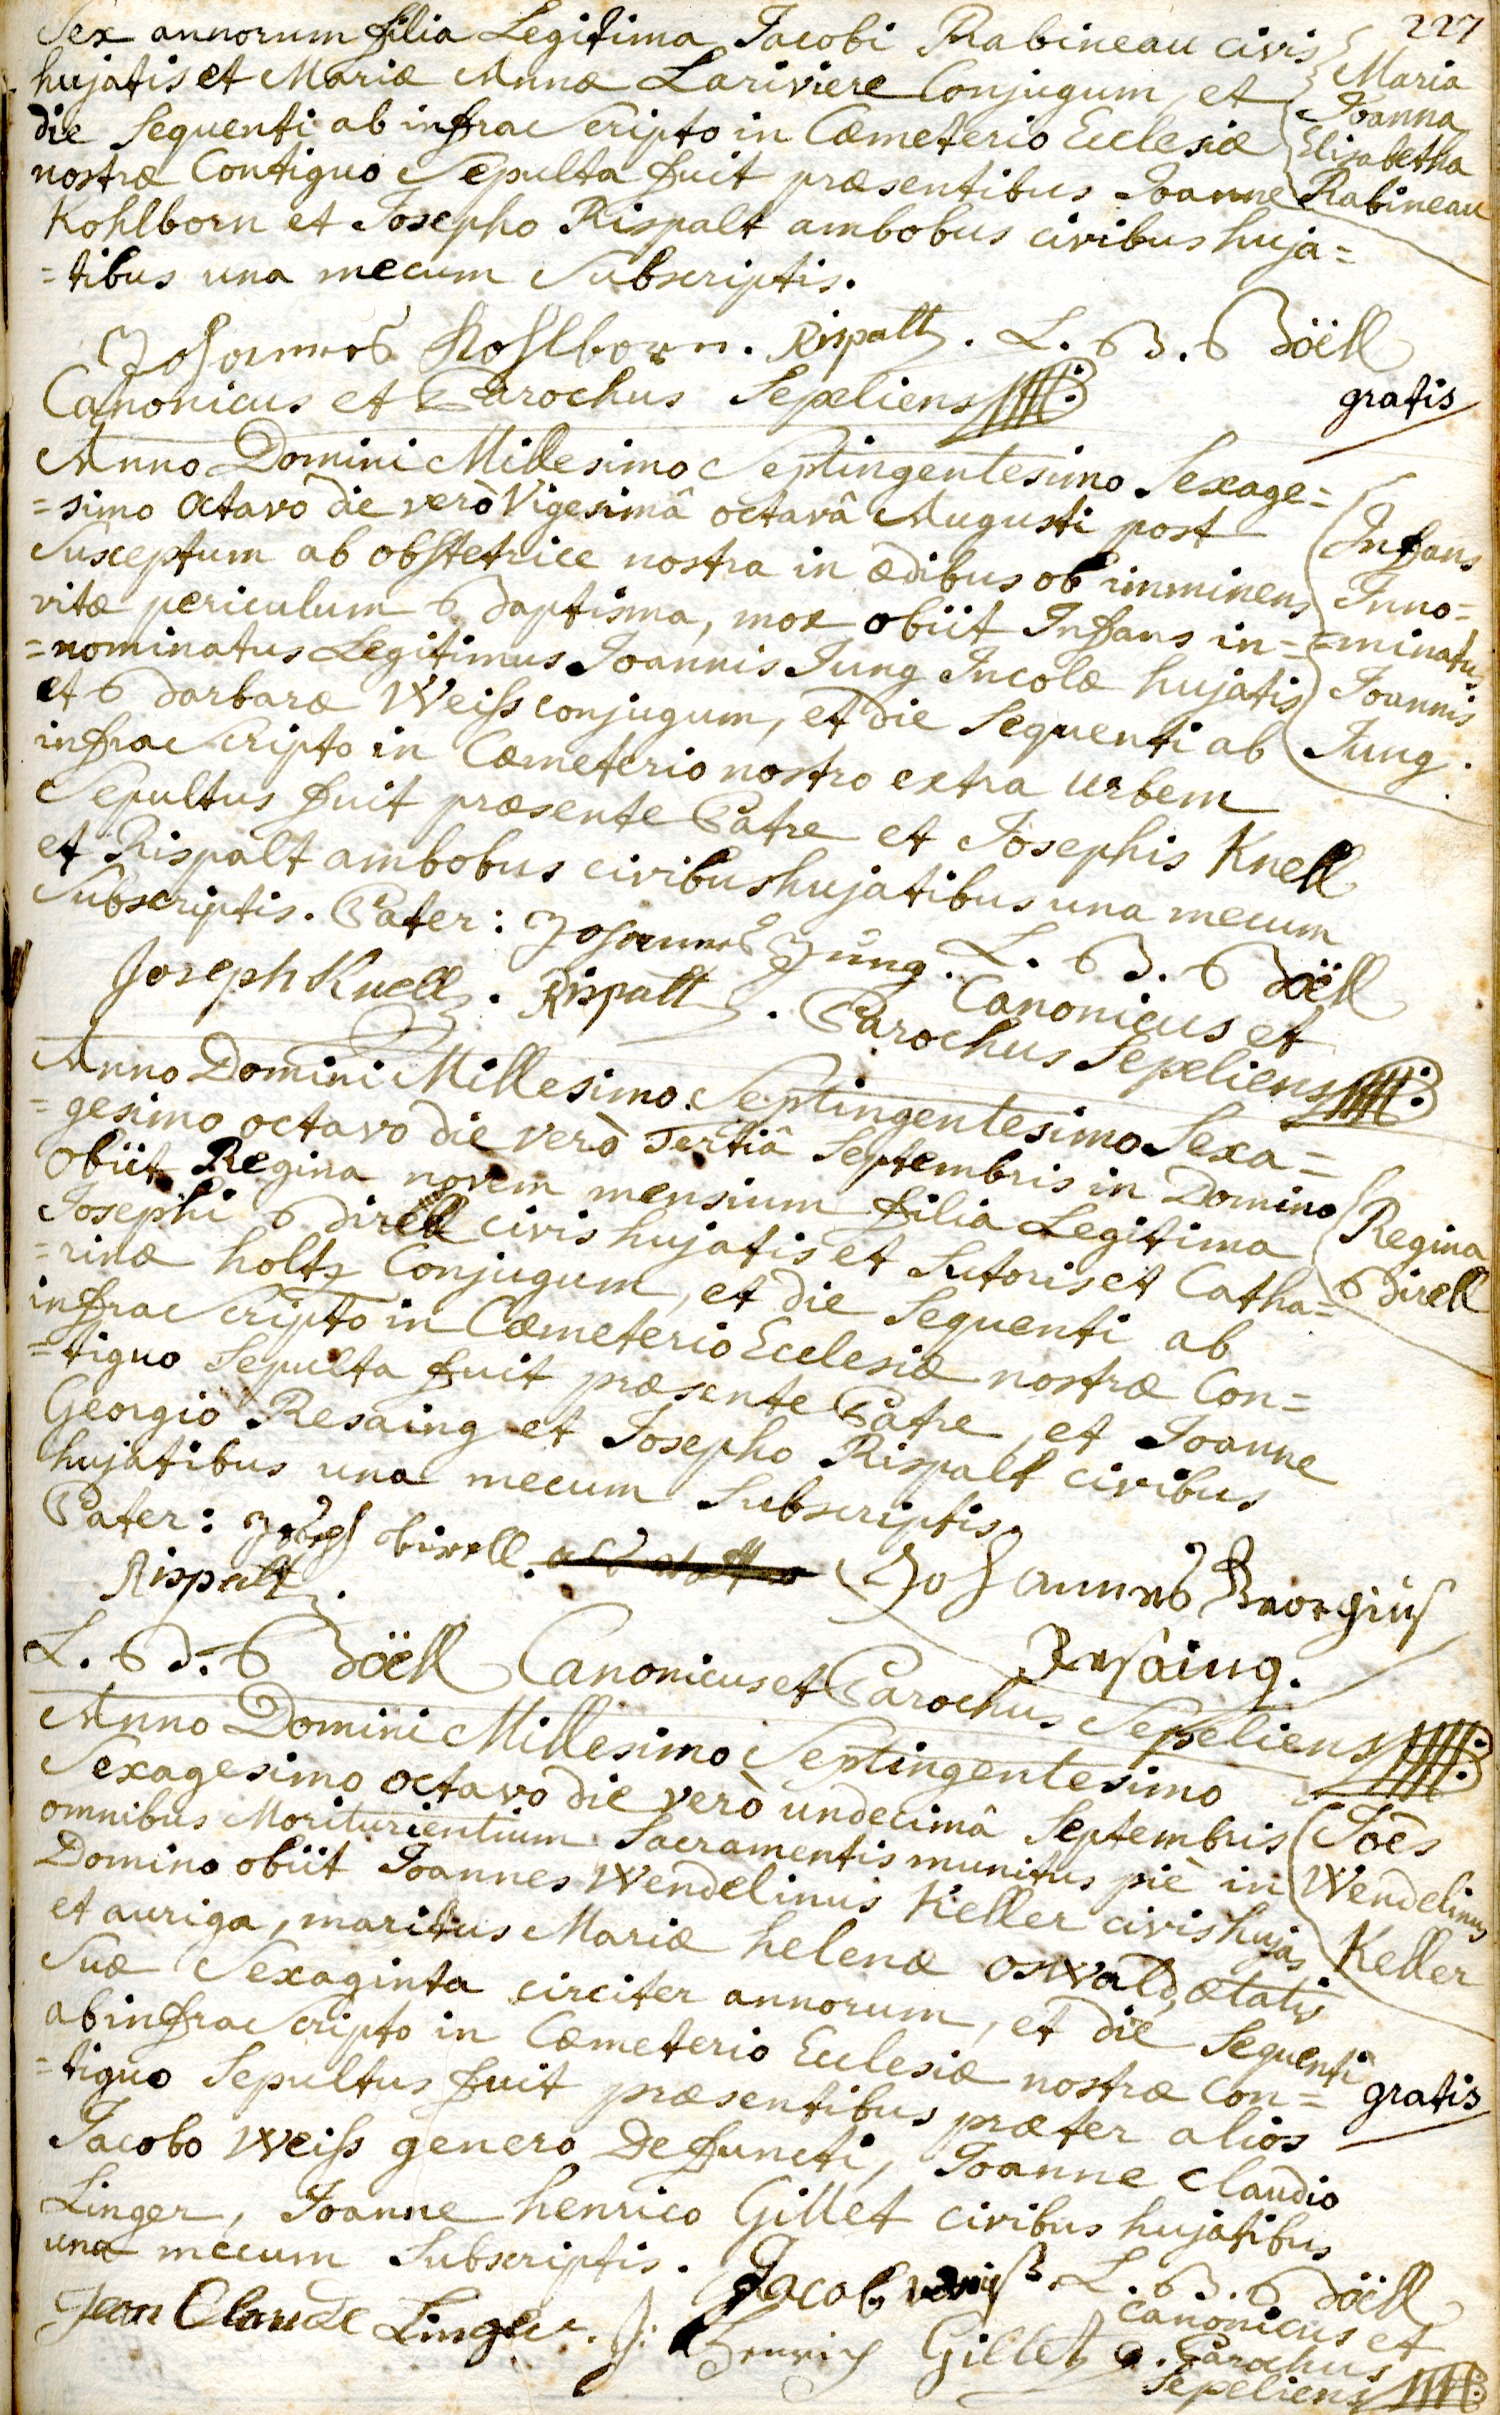 227
Sex annorum filia Legitima Jacobi Rabineau civis
hujatis et Mariæ Annæ Lariviere Conjugum, et
die Sequenti ab infrascripto in Cæmeterio Ecclesiæ
nostræ Contiguo Sepulta fuit præsentibus Joanne
Kohlborn et Josepho Rispalt ambobus civibus huja=
=tibus una mecum Subscriptis.
Maria
Joanna
Elisabetha
Rabineau
Johannes Kohlborn. Rispalt. L. B. Böell
Canonicus et Parochus Sepeliens
gratis
Anno Domini Millesimo Septingentesimo Sexage=
=simo octavo die verò Vigesimâ octavâ Augusti post
Susceptum ab obstetrice nostra in ædibus ob imminens
vitæ periculum Baptisma, mox obiit Infans in=
=nominatus Legitimus Joannis Jung Incolæ hujatis
et Barbaræ Weiss conjugum, et die Sequenti ab
infrascripto in Cæmeterio nostro extra urbem
Sepultus fuit præsente Patre et Josephis Knell
et Rispalt ambobus civibus hujatibus una mecum
Subscriptis. Pater: Johannes Jung. L. B. Böell
Joseph Knell. Rispalt. Canonicus et
Parochus Sepeliens
Infans
Inno=
=minatus
Joannis
Jung.
Anno Domini Millesimo Septingentesimo Sexa=
=gesimo octavo die verò Tertiâ Septembris in Domino
obiit Regina novem mensium filia Legitima
Josephi Birell civis hujatis et Sutoris et Catha=
=rinæ holtz Conjugum, et die Sequenti ab
infrascripto in Cæmeterio Ecclesiæ nostræ Con=
=tiguo Sepulta fuit præsente Patre, et Joanne
Georgio Resaing et Josepho Rispalt civibus
hujatibus una mecum Subscriptis.
Regina
Birell
Pater: Joseph birell. Johannes Georgius
Rispalt. Resaing.
L. B. Böell Canonicus et Parochus Sepeliens
Anno Domini Millesimo Septingentesimo
Sexagesimo octavo die verò undecimâ Septembris
omnibus Moriturientium Sacramentis munitus piè in
Domino obiit Joannes Wendelinus Keller civis hujas
et auriga, maritus Mariæ helenæ oswald, ætatis
Suæ Sexaginta circiter annorum, et die Sequenti
ab infrascripto in Cæmeterio Ecclesiæ nostræ Con=
=tiguo Sepultus fuit præsentibus præter alios
Jacobo Weiss genero Defuncti, Joanne Claudio
Linger, Joanne henrico Gillet civibus hujatibus
una mecum Subscriptis. Jacob weiß. L. B. Böell
Joês
Wendelinus
Keller
gratis
Jean Claude Linger. J: Henrich Gillet. canonicus et
Parochus
Sepeliens